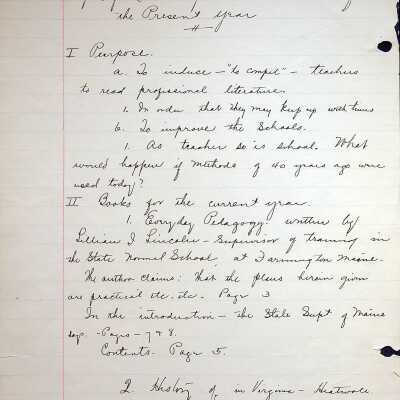 the Present year
I Purpose.
a. To induce - "to compel" - teachers
to read professional literature.
1. In order that they may keep up with times
b. To improve the Schools.
1. As teacher so is school. What
would happen if methods of 40 years ago were
used today?
II Books for the current year.
1. Everyday Pedagogy. written by
Lillian I. Lincoln - Supervisor of training in
the State Normal School, at Farmington Maine.
The author claims: that the plans herein given
are practical etc. etc. Page 3
In the introduction - the State Supt of Maine
says. - Pages - 7 & 8.
Contents - Page 5.
2. History of in Virginia - Heatwole.